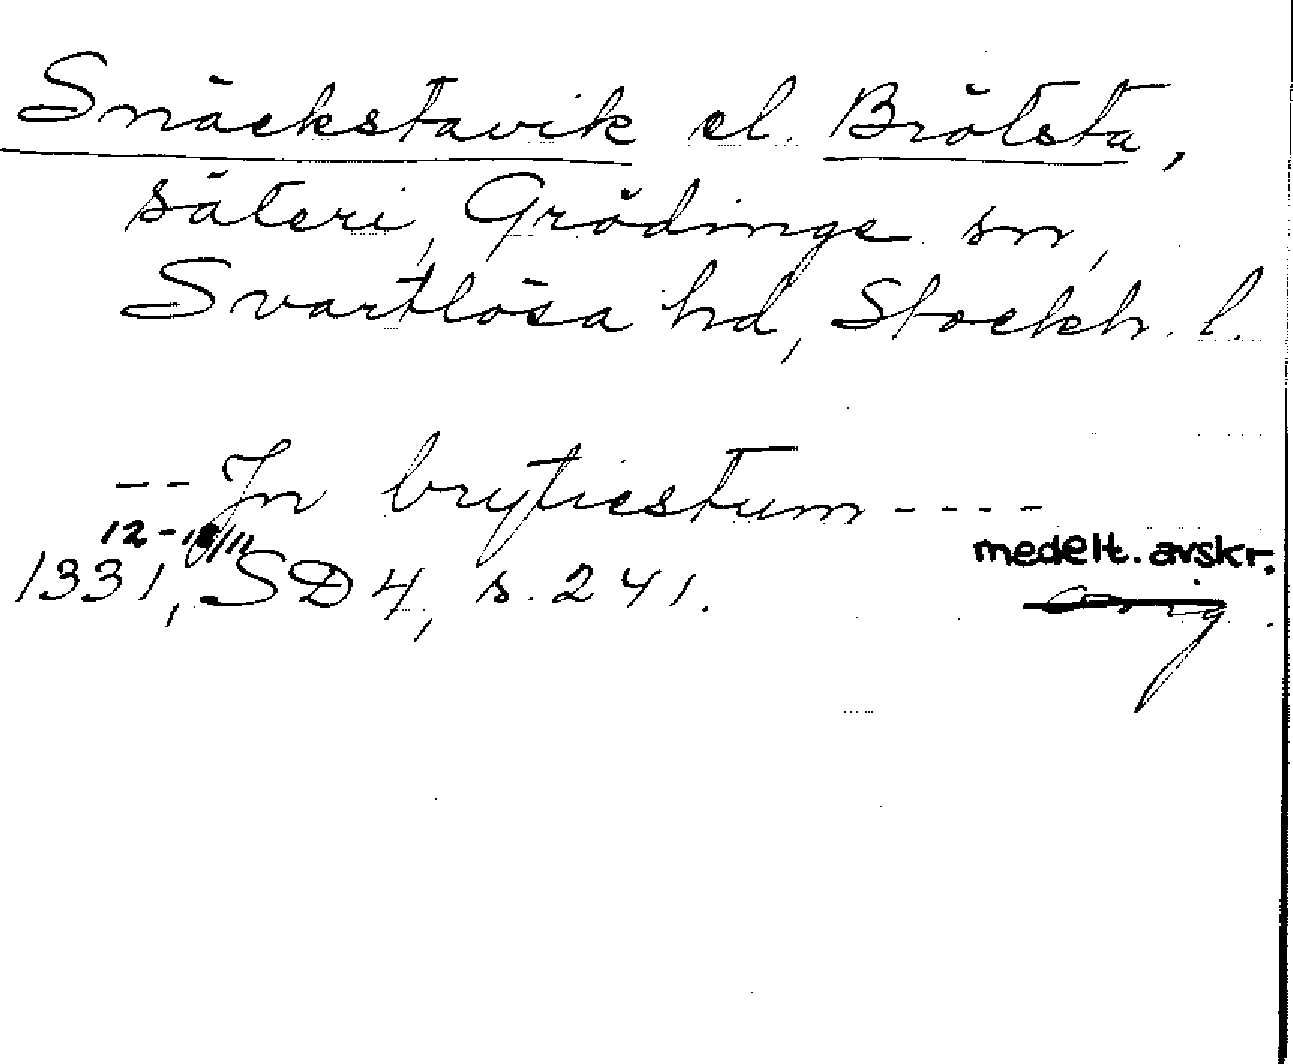 Snäckstavik el. Brötsta,
säteri, Grödinge sn,
Svartlösa hd, Stockh. l.
-- Jn brytiestum ----
12-18/11
medelt. avskr.
1331, SD 4, s. 241.
Orig.